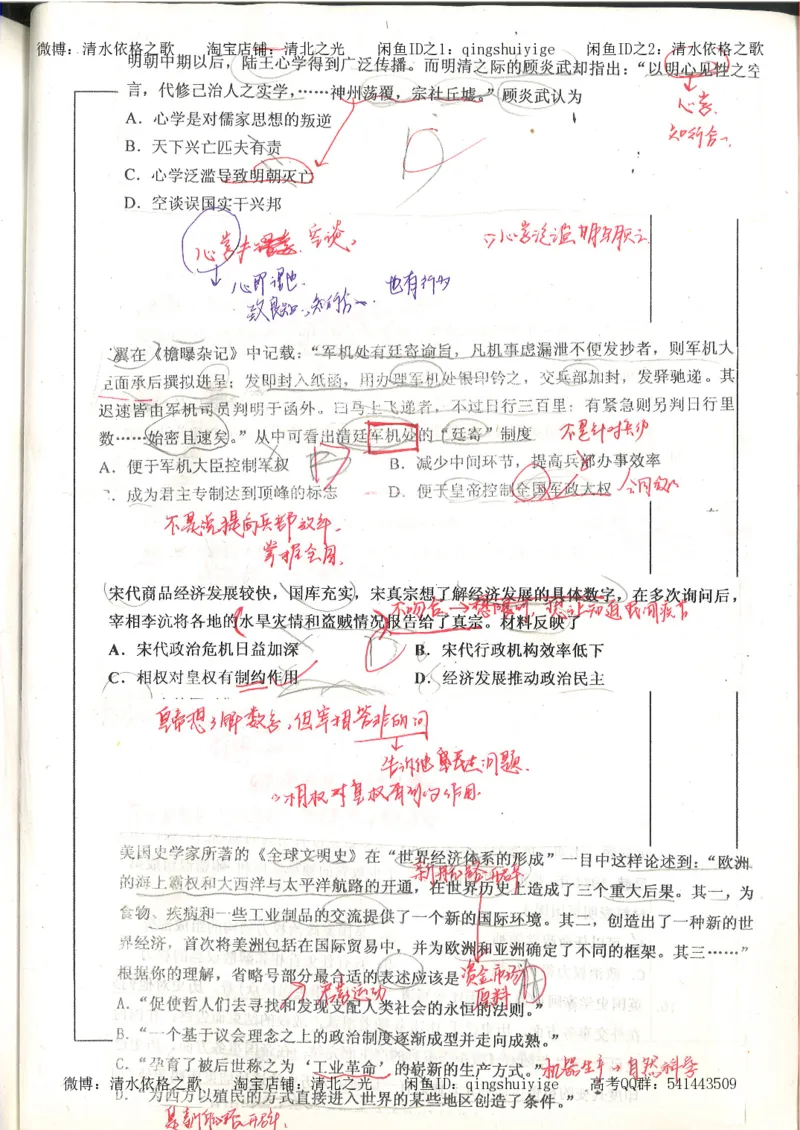 微博：清水依格之歌 淘宝店铺：清北之光 闲鱼ID之1：qingshuiyige 闲鱼ID之2：清水依格之歌
明朝中期以后，陆王心学得到广泛传播。而明清之际的顾炎武却指出：“以明心见性之空
言，代修己治人之实学，……神州荡覆，宗社丘墟。”顾炎武认为
心学
知行合一
A．心学是对儒家思想的叛逆
B．天下兴亡匹夫有责
C．心学泛滥导致明朝灭亡
D．空谈误国实干兴邦
心学 空谈
心即理也
致良知，知行合一 也有行为
翼在《檐曝杂记》中记载：“军机处有廷寄谕旨，凡机事虑漏泄不便发抄者，则军机大
臣面承后撰拟进呈；发即封入纸函，用办理军机处银印钤之，交兵部加封，发驿驰递。其
迟速皆由军机司员判明于函外。曰马上飞递者，不过日行三百里；有紧急则另判日行里
数……始密且速矣。”从中可看出清廷军机处的“廷寄”制度
不是针对兵部
A．便于军机大臣控制军权 B．减少中间环节，提高兵部办事效率
C．成为君主专制达到顶峰的标志 D．便于皇帝控制全国军政大权
不是说提高兵部效率
掌握全国
宋代商品经济发展较快，国库充实，宋真宗想了解经济发展的具体数字，在多次询问后，
宰相李沆将各地的水旱灾情和盗贼情况报告给了真宗。材料反映了
A．宋代政治危机日益加深 B．宋代行政机构效率低下
C．相权对皇权有制约作用 D．经济发展推动政治民主
皇帝想了解数字，但宰相答非所问
告诉他 问题
∴相权对皇权有制约作用
美国史学家所著的《全球文明史》在“世界经济体系的形成”一目中这样论述到：“欧洲
新航路开辟
的海上霸权和大西洋与太平洋航路的开通，在世界历史上造成了三个重大后果。其一，为
食物、疾病和一些工业制品的交流提供了一个新的国际环境。其二，创造出了一种新的世
界经济，首次将美洲包括在国际贸易中，并为欧洲和亚洲确定了不同的框架。其三……”
根据你的理解，省略号部分最合适的表述应该是
资金市场
原料
A．“促使哲人们去寻找和发现支配人类社会的永恒的法则。”
B．“一个基于议会理念之上的政治制度逐渐成型并走向成熟。”
C．“孕育了被后世称之为‘工业革命’的崭新的生产方式。”
机器生产→自然科学
微博：清水依格之歌 淘宝店铺：清北之光 闲鱼ID：qingshuiyige 高考QQ群：541443509
D．“为西方以殖民的方式直接进入世界的某些地区创造了条件。”
是新航路开辟